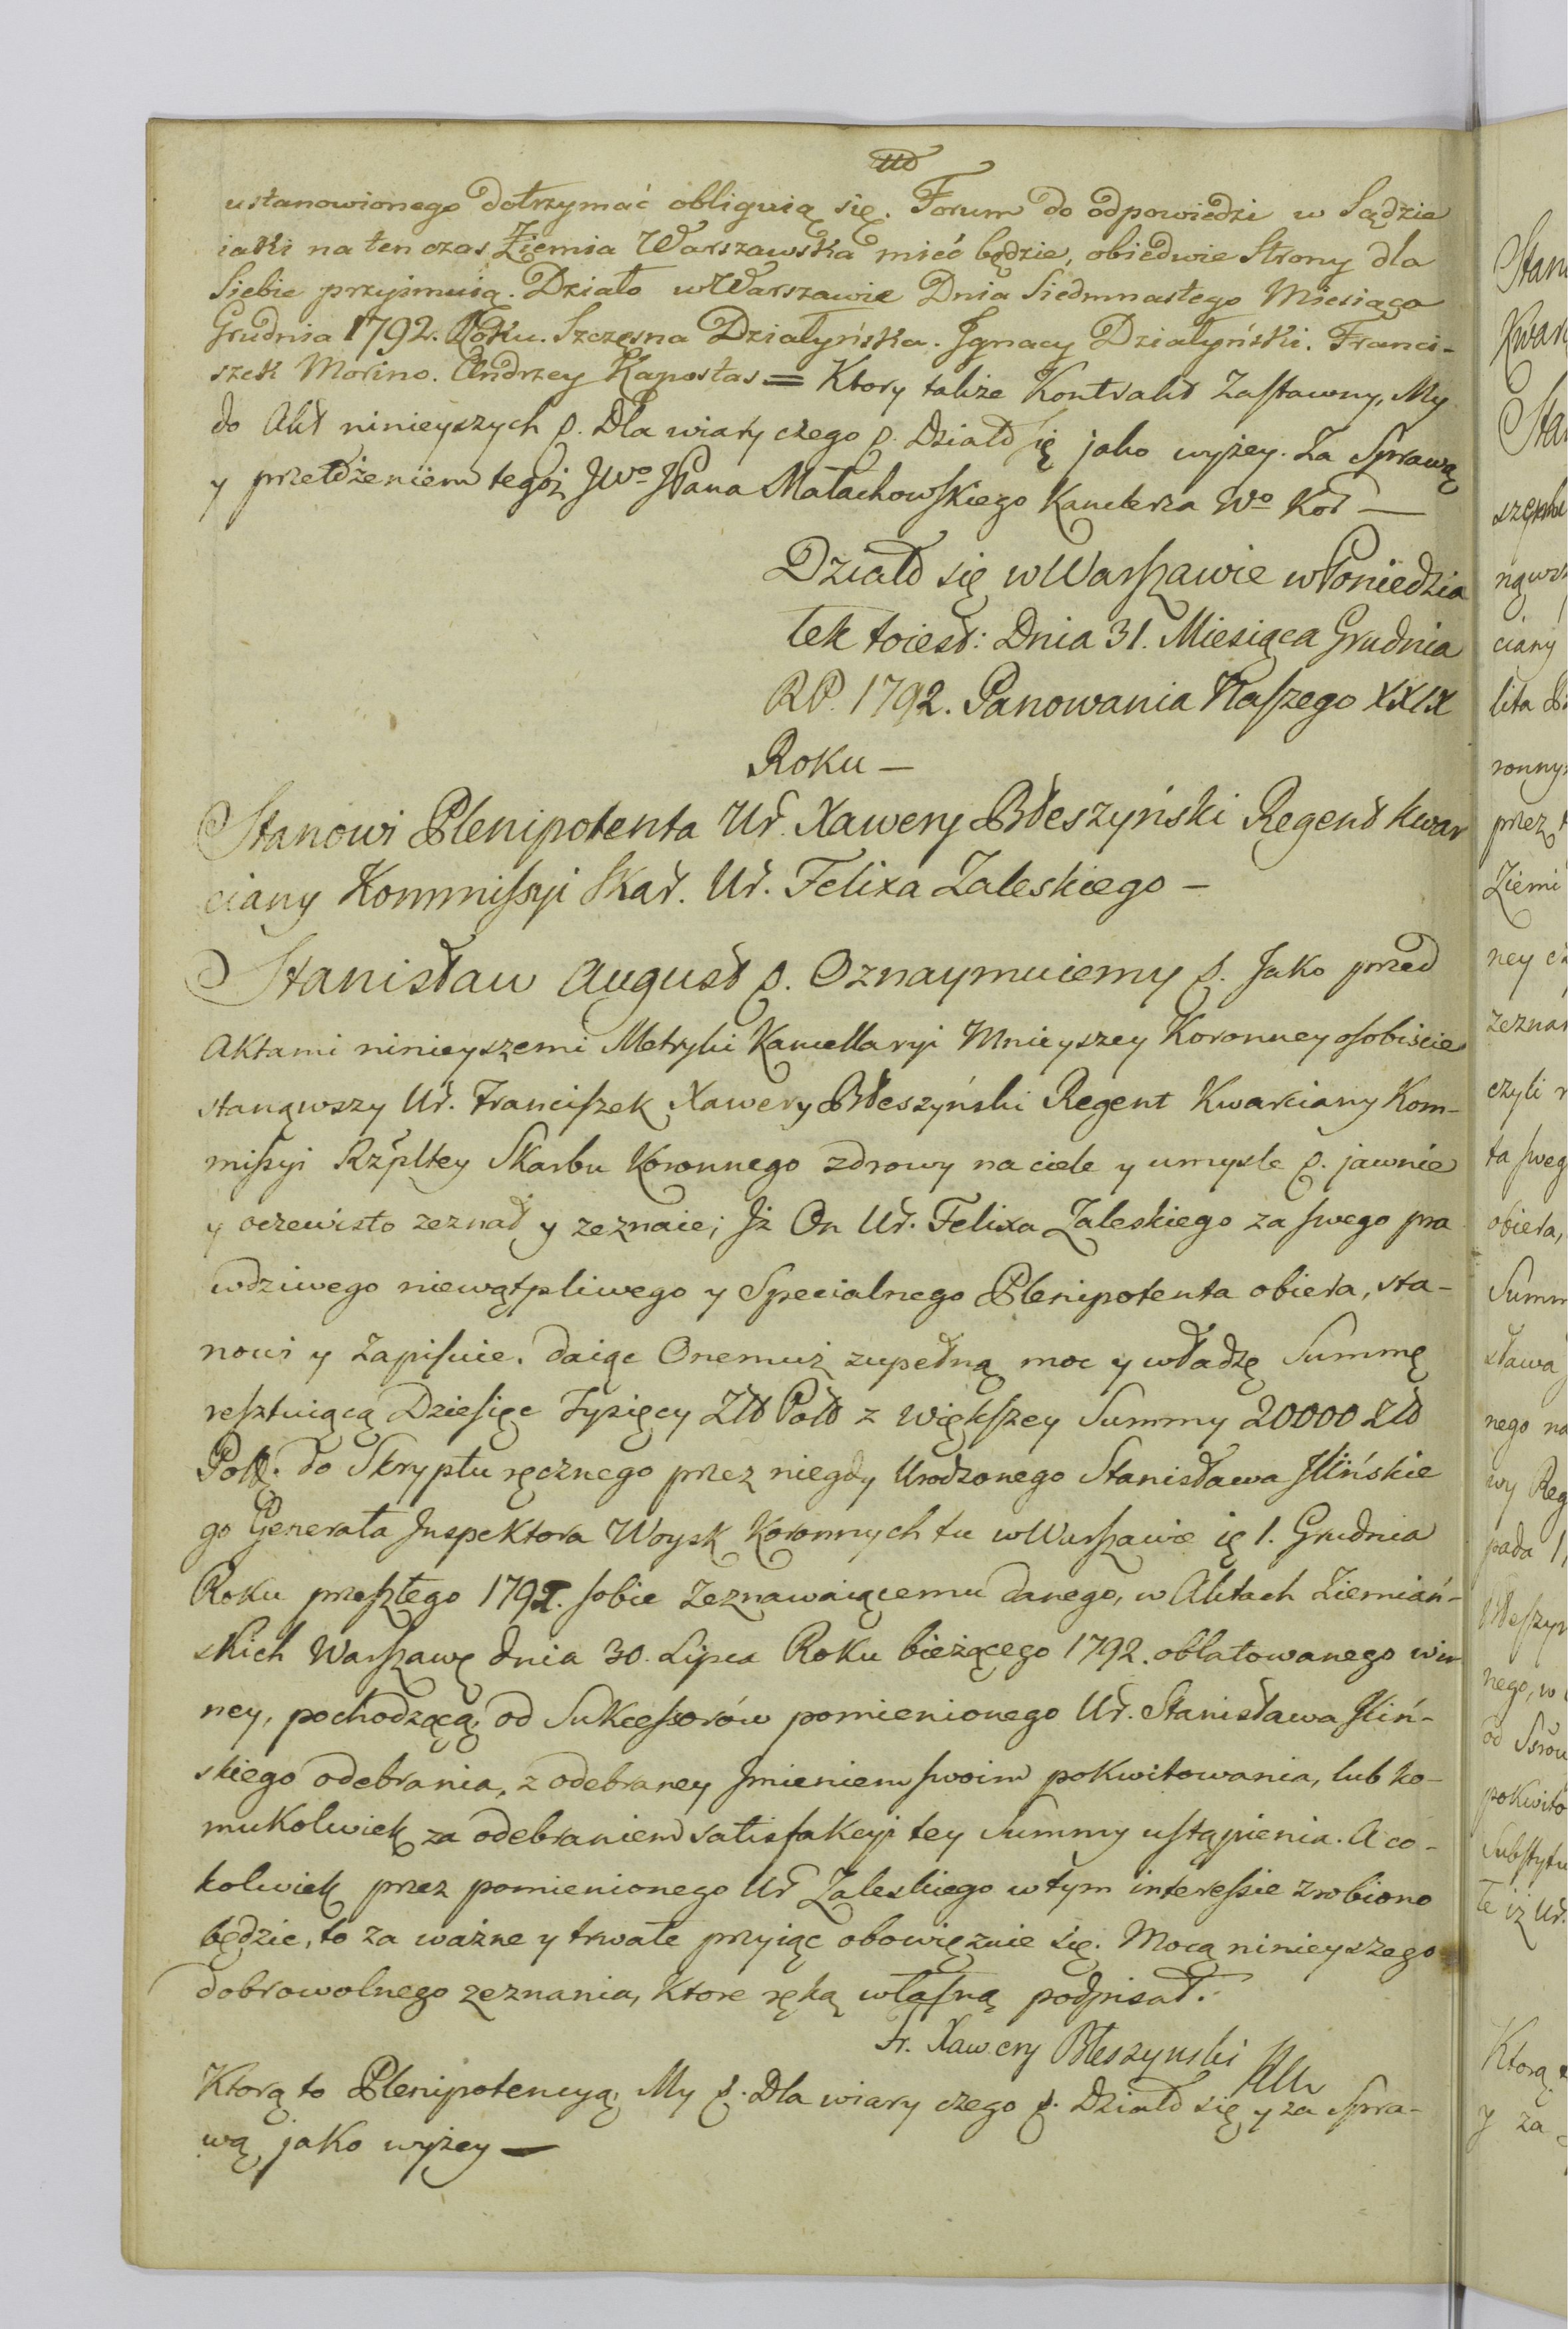 ustanowionego dotrzymać obliguią się. Forum do odpowiedzi w Sądzie
iaki na ten czas Ziemia Warszawska mieć będzie, obiedwie Strony dla
Siebie przyimuią. Działo w Warszawie Dnia Siedmnastego Miesiąca
Grudnia 1792. Roku. Szczęsna Działyńska. Ignacy Działyński. Franci-
szek Morino. Andrzey Kapostas = Ktory takze Kontrakt Zastawny, My
do Akt ninieyszych p. Dla wiary czego p. Działo się jako wyżey. Za Sprawą
y przełożeniem tegoż JWo JPana Małachowskiego Kanclerza Wo Kor —
Działo się w Warszawie w Poniedzia
łek toiest: Dnia 31. Miesiąca Grudnia
RP. 1792. Panowania Naszego XXIX
Roku —
Stanowi Plenipotenta Ur. Xawery Błeszyński Regent kwar
ciany Kommissyi Skar. Ur. Felixa Zaleskiego —
Stanisław August p. Oznaymuiemy p. Jako przed
Aktami ninieyszemi Metryki Kancellaryi Mnieyszey Koronney osobiście
stanąwszy Ur. Franciszek Xawery Błeszyński Regent Kwarciany Kom-
missyi Rzpltey Skarbu Koronnego zdrowy na ciele y umysle p. jawnie
y oczewisto zeznał y zeznaie; Iż On Ur. Felixa Zaleskiego za swego pra
wdziwego niewątpliwego y Specialnego Plenipotenta obiera, sta-
nowi y Zapisuie. daiąc Onemuż zupełną moc y władzę Summę
resztuiącą Dziesięc Tysięcy Zło Pols z większey Summy 20000 Zło
Pols. do Skryptu ręcznego przez niegdy Urodzonego Stanisława Ilińskie
go Generała Inspektora Woysk Koronnych tu w Warszawie ię 1. Grudnia
Roku przeszłego 1791. sobie Zeznawaiącemu danego, w Aktach Ziemiań-
skich Warszawę dnia 30. Lipca Roku bieżącego 1792. oblatowanego win
ney, pochodzącą, od Sukcessorów pomienionego Ur. Stanisława Iliń-
skiego odebrania, z odebraney Imieniem swoim pokwitowania, lub ko-
mukolwiek za odebraniem satisfakcyi tey Summy ustąpienia. A co-
kolwiek przez pomienionego Ur Zaleskiego w tym interessie zrobiono
będzie, to za ważne y trwałe przyiąc obowięzuie się. Mocą ninieyszego
dobrowolnego zeznania, ktore ręką własną podpisał.
Fr. Xawery Błeszynski
Ktorą to Plenipotencyą My p. Dla wiary czego p. Działo się y za Spra-
wą jako wyżey —